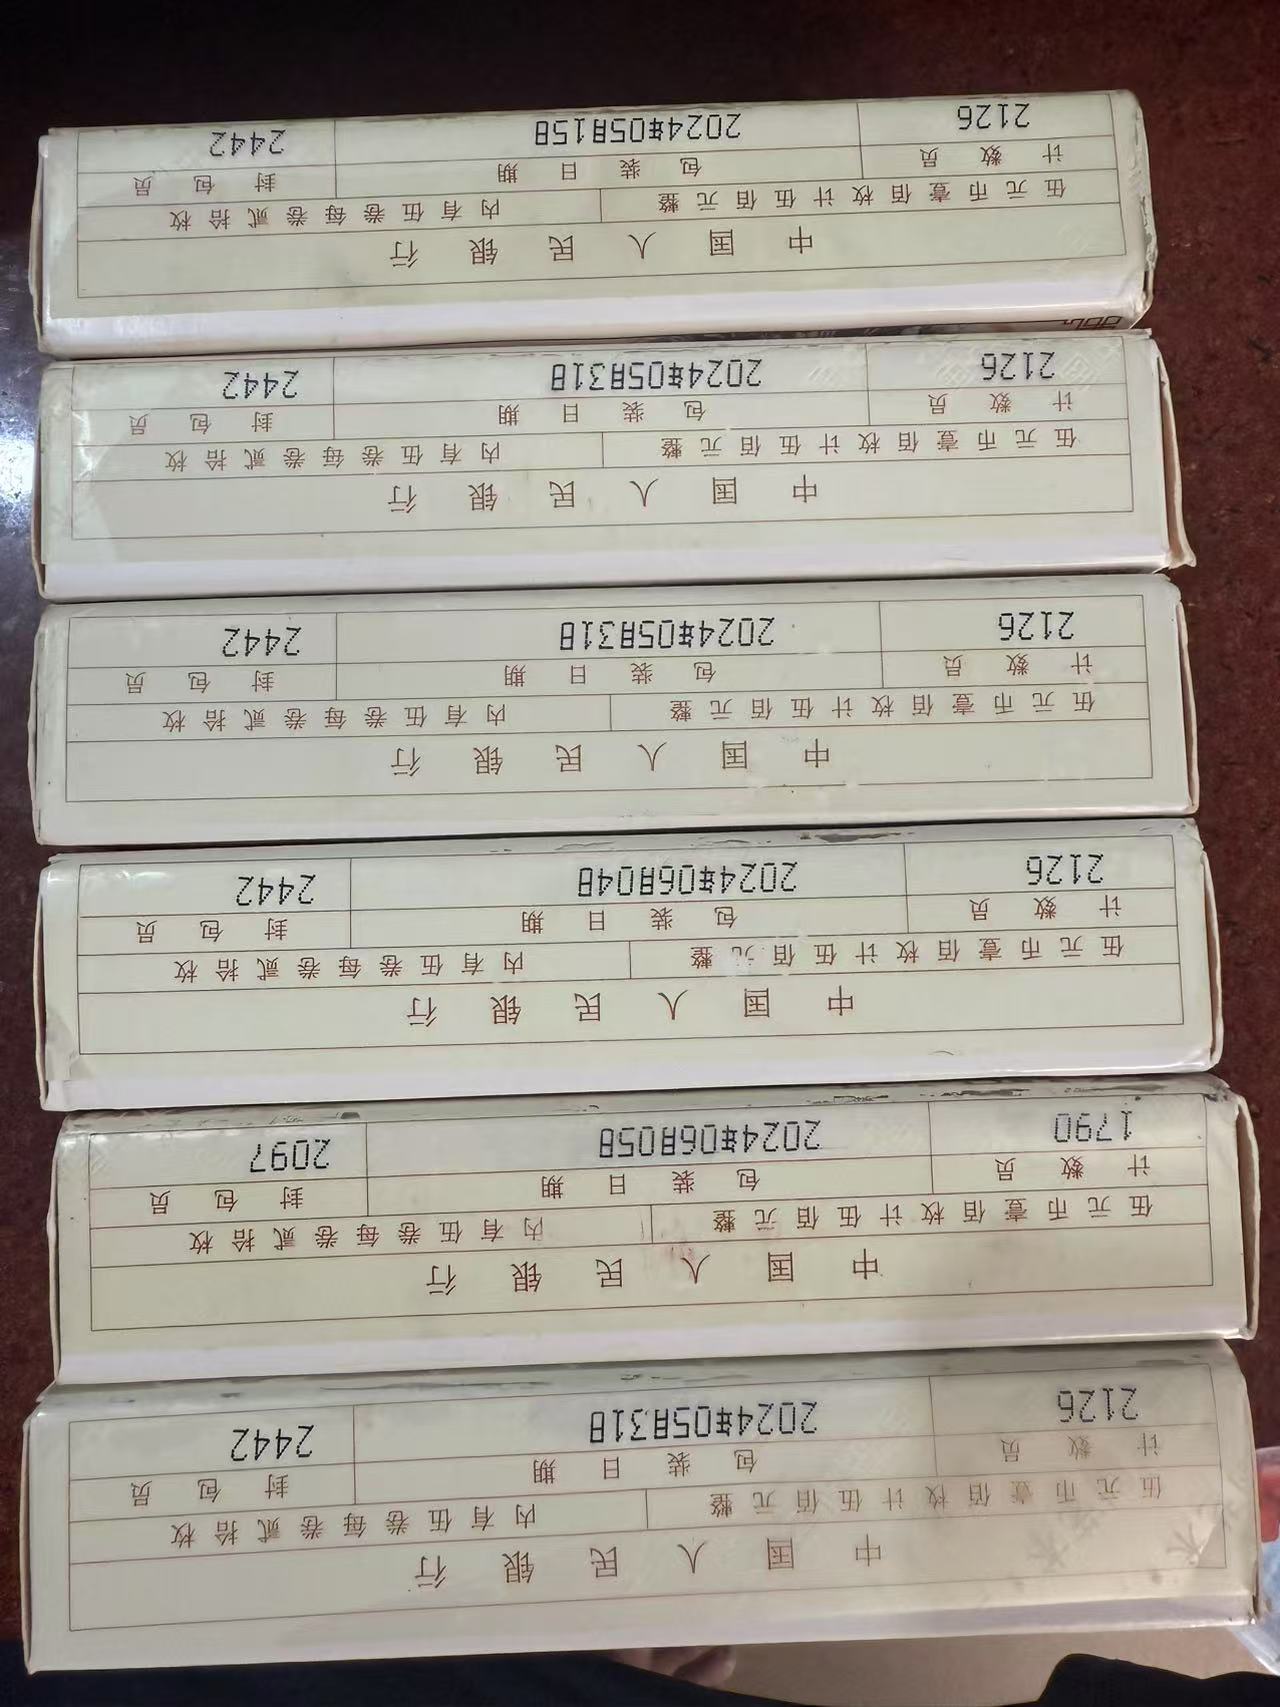 中国人民银行
伍元币壹佰枚计伍佰元整 内有伍卷每卷贰拾枚
计数员 包装日期 封包员
2126 2024年05月31日 2442
中国人民银行
伍元币壹佰枚计伍佰元整 内有伍卷每卷贰拾枚
计数员 包装日期 封包员
1790 2024年06月05日 2097
中国人民银行
伍元币壹佰枚计伍佰元整 内有伍卷每卷贰拾枚
计数员 包装日期 封包员
2126 2024年06月04日 2442
中国人民银行
伍元币壹佰枚计伍佰元整 内有伍卷每卷贰拾枚
计数员 包装日期 封包员
2126 2024年05月31日 2442
中国人民银行
伍元币壹佰枚计伍佰元整 内有伍卷每卷贰拾枚
计数员 包装日期 封包员
2126 2024年05月31日 2442
中国人民银行
伍元币壹佰枚计伍佰元整 内有伍卷每卷贰拾枚
计数员 包装日期 封包员
2126 2024年05月15日 2442